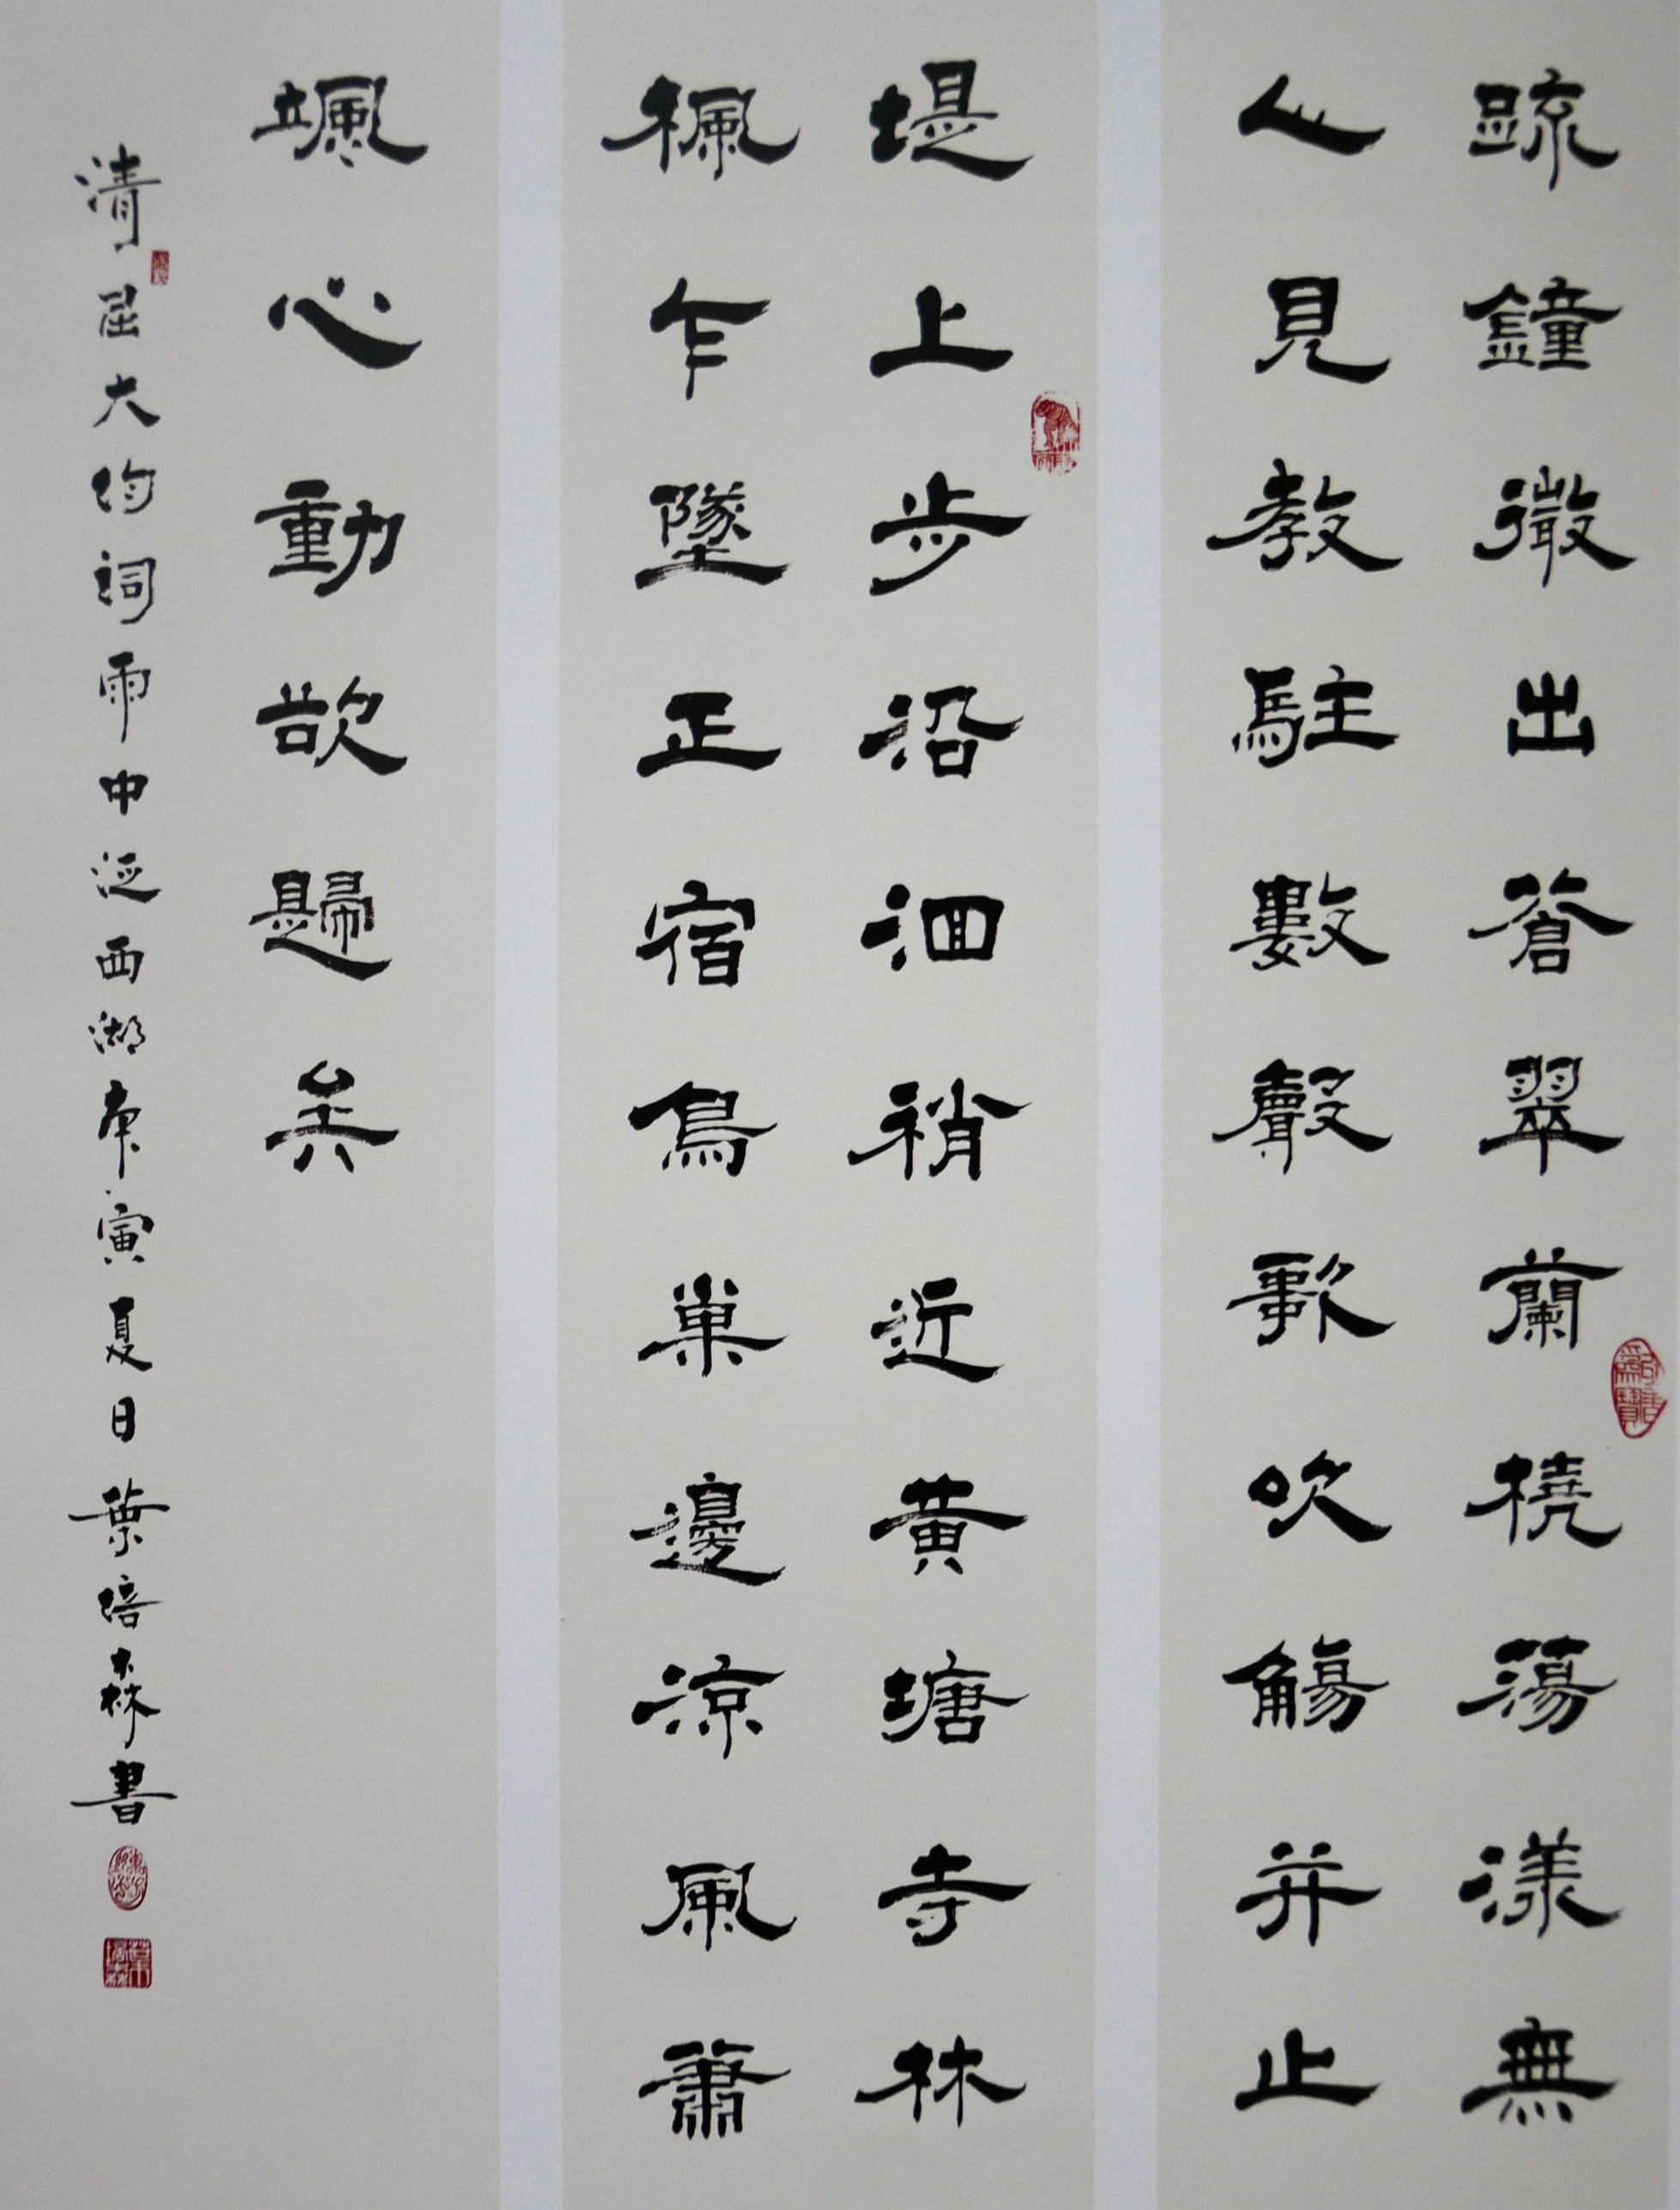 疏鐘微出蒼翠蘭橈蕩漾無
人見教駐數聲歌吹觴并止
堤上步沿洄稍近黄塘寺林
楓乍墜正宿鳥巢邊凉風蕭
颯心動欲歸矣
清屈大均词雨中泛西湖庚寅夏日葉培森書